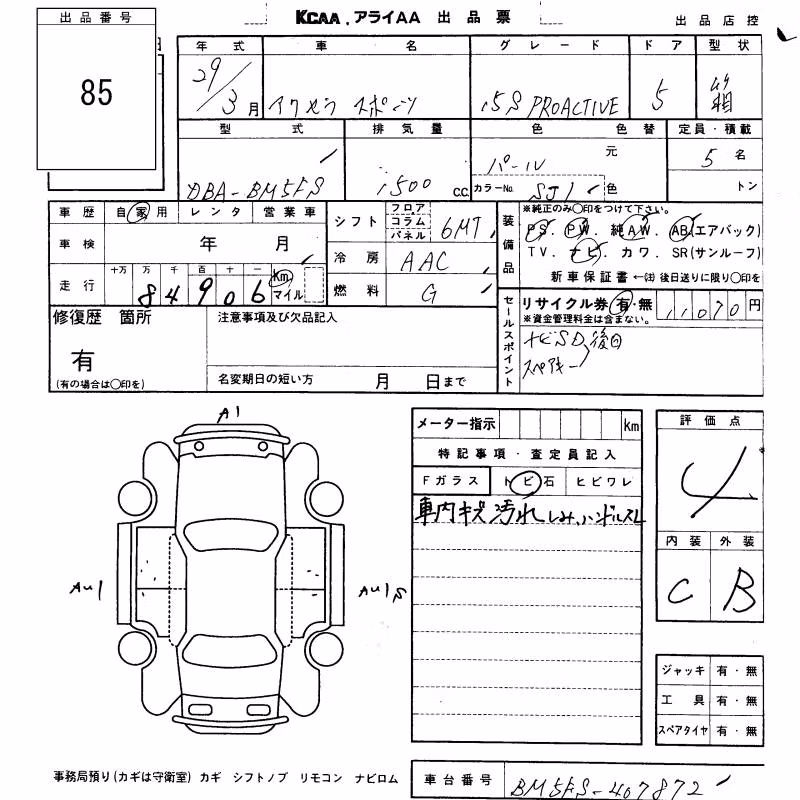 KCAA、アライAA 出品票
出品店控
出品番号
85
年式 車名 グレード ドア 形状
29/3月 アクセラ スポーツ 15S PROACTIVE 5 箱
型式 排気量 色 色替 定員・積載
DBA-BM5FS 1500 cc. パール 元 5名
カラーNo. SJ1 色 トン
車歴 自家用 レンタ 営業車
車検 年 月
走行 十万 万 千 百 十 一 Km マイル
84906
シフト フロア コラム パネル 6MT
冷房 AAC
燃料 G
装備品
※純正のみ○印をつけて下さい。
PS. PW. 純AW. AB(エアバック)
TV. ナビ. カワ. SR(サンルーフ)
新車保証書 ←㊟ 後日送りに限り○印を
リサイクル券 有・無 11070円
※資金管理料金は含まない。
セールスポイント
ナビSD 後日
スペアキー
修復歴 箇所
有
(有の場合は○印を)
注意事項及び欠品記入
名変期日の短い方 月 日まで
A1
AU1
AU1S
メーター指示 km
特記事項・査定員記入
Fガラス トビ石 ヒビワレ
車内キズ 汚れ しみ、ハンドルスレ
評価点
4
内装 外装
C B
ジャッキ 有・無
工具 有・無
スペアタイヤ 有・無
事務局預り(カギは守衛室) カギ シフトノブ リモコン ナビロム
車台番号 BM5FS-407872